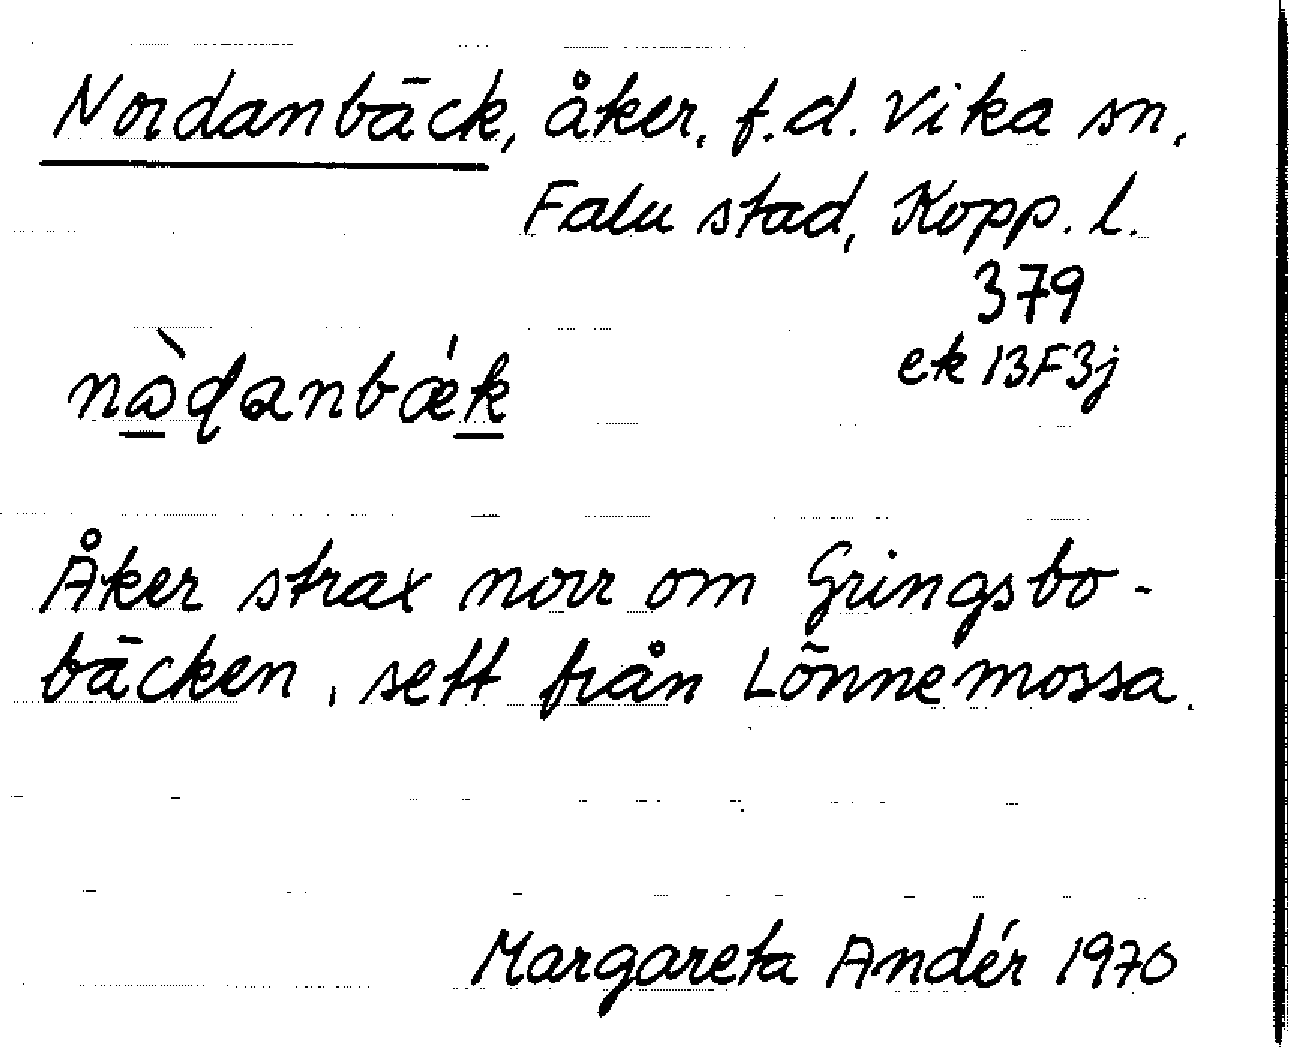 Nordanbäck, åker, f.d. Vika sn,
Falu stad, Kopp. l.
379
ek 13F3j
nàɖanbǽk
Åker strax norr om Gringsbo-
bäcken, sett från Lönnemossa.
Margareta Andér 1970